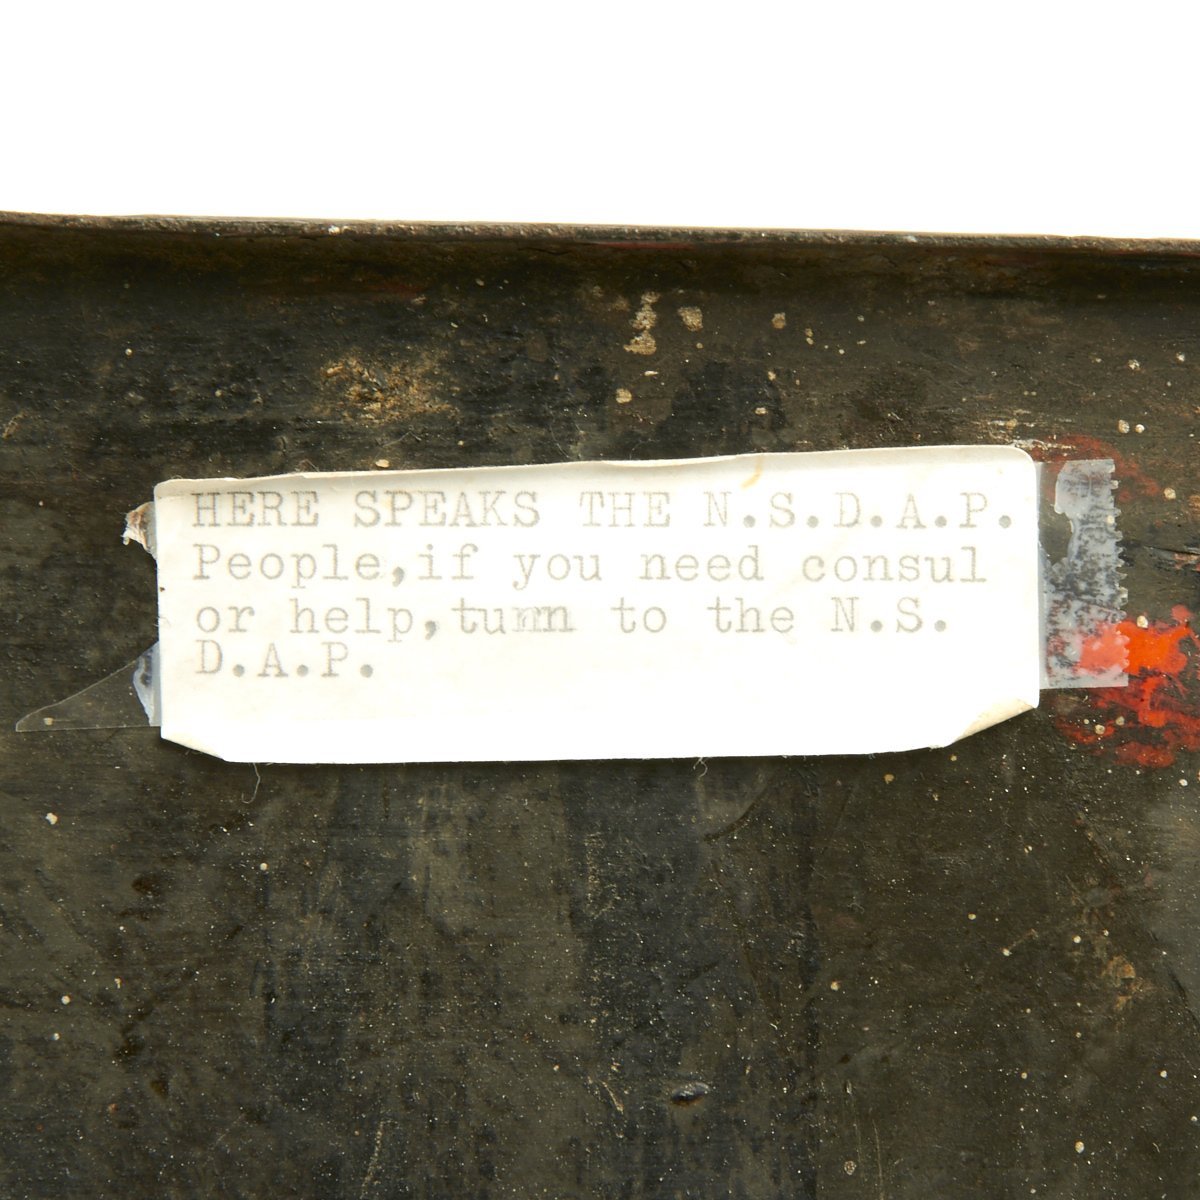 HERE SPEAKS THE N.S.D.A.P.
People,if you need consul
or help,turn to the N.S.
D.A.P.